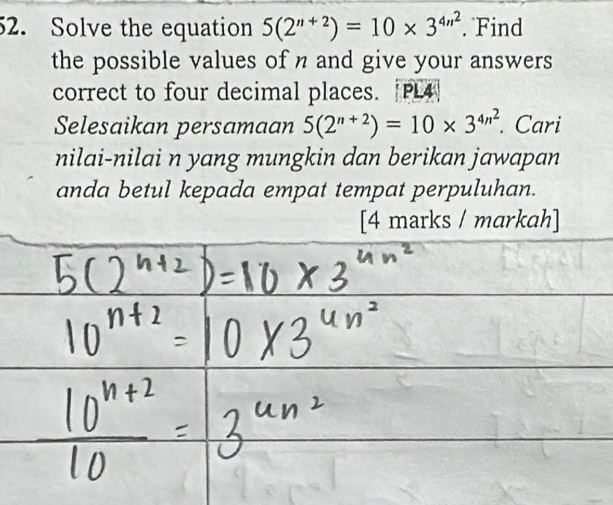 52. Solve the equation 5(2ⁿ⁺²) = 10 × 3⁴ⁿ². Find
the possible values of n and give your answers
correct to four decimal places. PL4
Selesaikan persamaan 5(2ⁿ⁺²) = 10 × 3⁴ⁿ². Cari
nilai-nilai n yang mungkin dan berikan jawapan
anda betul kepada empat tempat perpuluhan.
[4 marks / markah]
5(2ⁿ⁺²) = 10 × 3⁴ⁿ²
10ⁿ⁺² = 10 × 3⁴ⁿ²
10ⁿ⁺²/10 = 3⁴ⁿ²